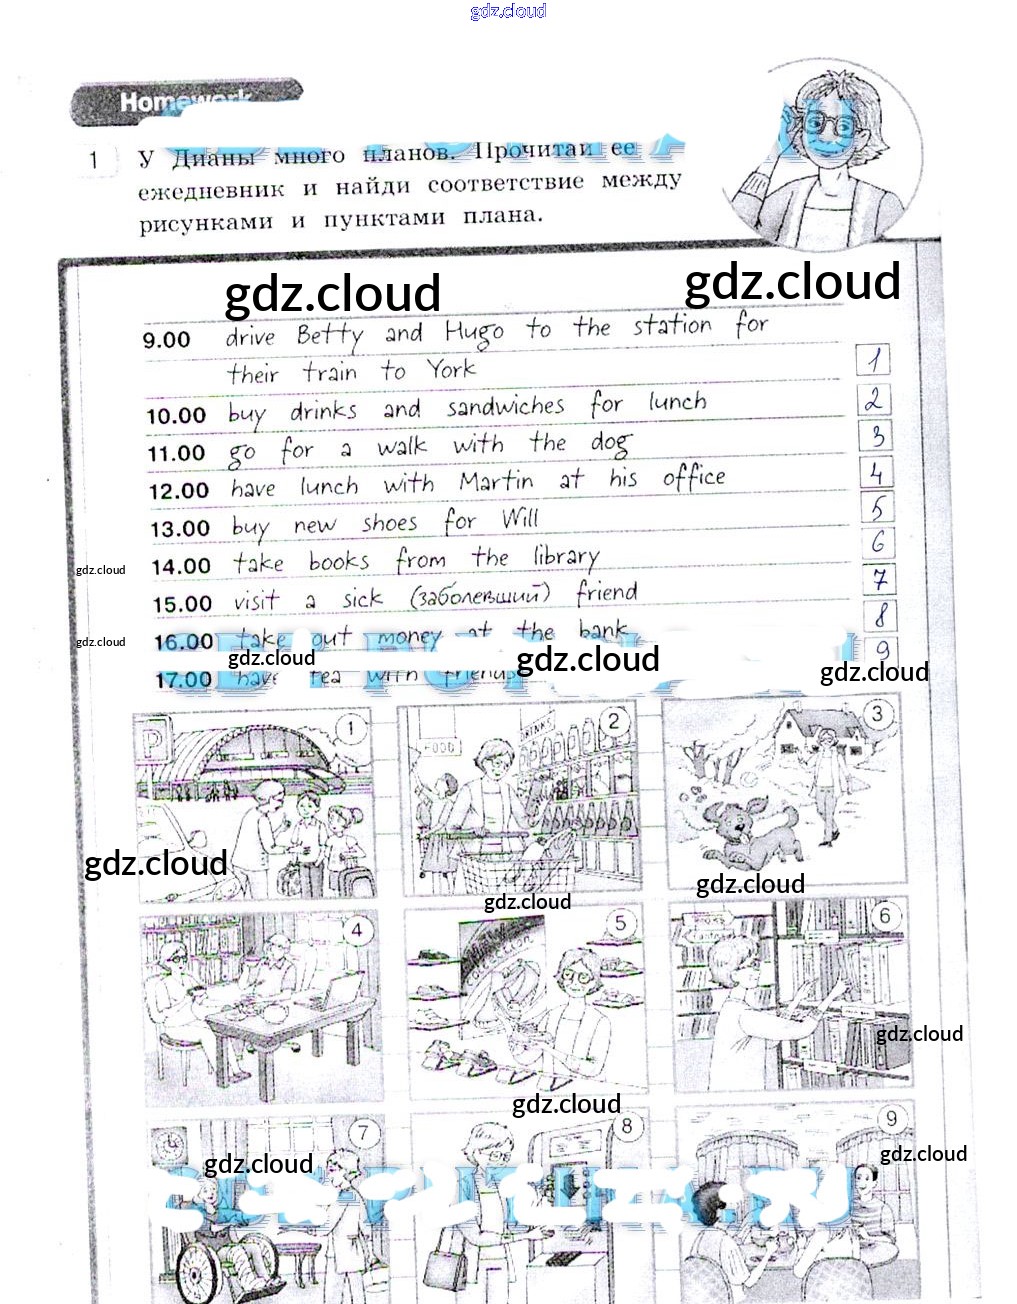 gdz.cloud
Homework
1 У Дианы много планов. Прочитай ее
ежедневник и найди соответствие между
рисунками и пунктами плана.
gdz.cloud gdz.cloud
9.00 drive Betty and Hugo to the station for
their train to York 1
10.00 buy drinks and sandwiches for lunch 2
11.00 go for a walk with the dog 3
12.00 have lunch with Martin at his office 4
13.00 buy new shoes for Will 5
14.00 take books from the library 6
gdz.cloud
15.00 visit a sick (заболевший) friend 7
16.00 take out money at the bank 8
gdz.cloud
gdz.cloud gdz.cloud gdz.cloud
17.00 have tea with friends 9
P 1
FOOD DRINKS 2
3
gdz.cloud
gdz.cloud
gdz.cloud
4
5
6
gdz.cloud
gdz.cloud
7
8
9
gdz.cloud
gdz.cloud